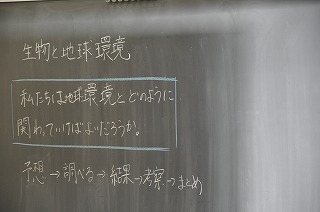 生物と地球環境
私たちは地球環境とどのように
関わっていけばよいだろうか。
予想→調べる→結果→考察→まとめ